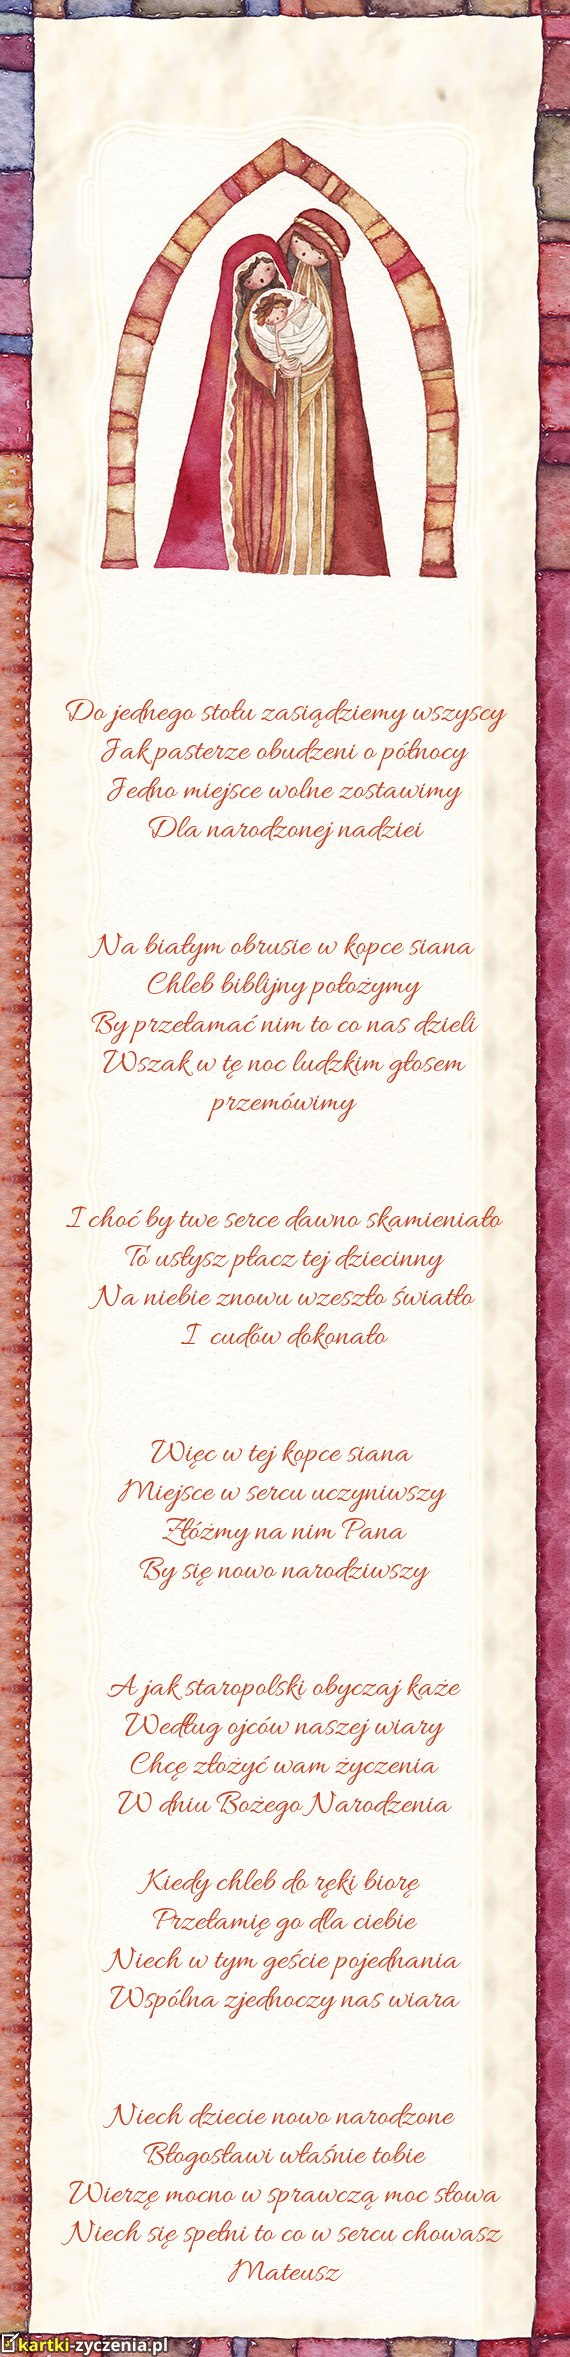 Do jednego stołu zasiądziemy wszyscy
Jak pasterze obudzeni o północy
Jedno miejsce wolne zostawimy
Dla narodzonej nadziei
Na białym obrusie w kopce siana
Chleb biblijny położymy
By przełamać nim to co nas dzieli
Wszak w tę noc ludzkim głosem
przemówimy
I choć by twe serce dawno skamieniało
To usłysz płacz tej dziecinny
Na niebie znowu wzeszło światło
I cudów dokonało
Więc w tej kopce siana
Miejsce w sercu uczyniwszy
Złóżmy na nim Pana
By się nowo narodziwszy
A jak staropolski obyczaj każe
Według ojców naszej wiary
Chcę złożyć wam życzenia
W dniu Bożego Narodzenia
Kiedy chleb do ręki biorę
Przełamię go dla ciebie
Niech w tym geście pojednania
Wspólna zjednoczy nas wiara
Niech dziecie nowo narodzone
Błogosławi właśnie tobie
Wierzę mocno w sprawczą moc słowa
Niech się spełni to co w sercu chowasz
Mateusz
kartki-zyczenia.pl